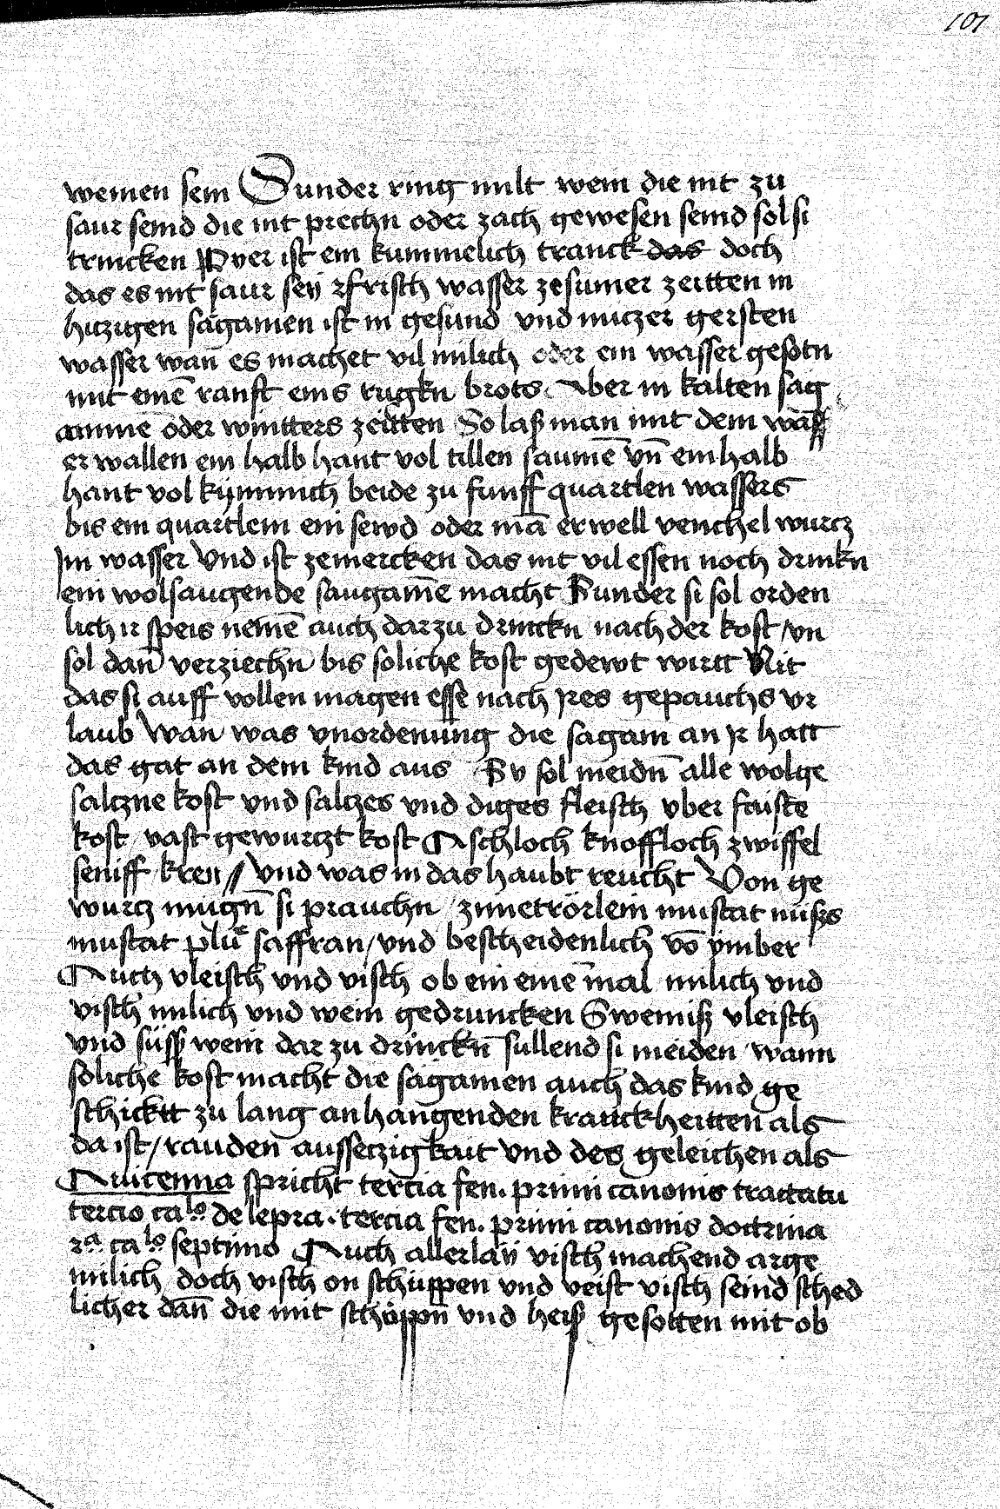 101
weinen sein Sunder ring milt wein die nit zu
saur seind die nit prechn oder zach gewesen seind sol si
trincken Pyer ist ein kummelich tranck das doch
das es nit saur seÿ vnd frisch wasser ze sumer zeitten in
hiczigen sagamen ist in gesund vnd nuczer gersten
wasser wan̄ es machet vil milich oder ein wasser gesotn
mit einē ranft eins rugkn brots Aber in kalten sag
amme oder wintters zeitten So laß man mit dem wass
er wallen ein halb hant vol tillen saumē vn̄ ein halb
hant vol kÿmmich beide zu funff quartlen wassers
bis ein quartlein ein sewd oder mā erwell venchel wurcz
Im wasser Vnd ist zemercken das nit vil essen noch drinkn
ein wolsaugende saugam̄e macht Sunder si sol orden
lich ir speis nemē auch darzu drinckn nach der kost / vn
sol dan̄ verziechn̄ bis soliche kost gedewt wirtt Nit
das si auff vollen magen esse nach Ires gepauchs vr
laub Wan was vnordenung die sagam an Ir hatt
das gat an dem kind aus Sy sol meidn̄ alle wolge
salczne kost vnd salczes vnd diges fleisch vber faiste
kost / vast gewurczt kost Aschloch knoffloch zwiffel
seniff / kren // Vnd was in das haubt reucht Von ge
wurcz mugn̄ si prauchn / zimetrörlein muscat nüss
muscat plūe saffran / vnd bescheidenlich vō ÿmber
Auch vleisch vnd visch ob ein einē mal milich vnd
visch milich vnd wein gedruncken Sweiniß vleisch
vnd süß wein dar zu drinckn̄ sullend si meiden / wann
soliche kost macht die sagamen auch das kind ge
schicktt zu lang anhangenden kranckheitten als
da ist / rauden aussetzigkait vnd des geleichen als
Auicenna spricht tercia fen. primi canonis tractatu
tercio calo de lepra . tercia fen. primi canonis doctrina
ra calo septimo Auch allerlaÿ visch machend arge
milich doch visch on schuppen vnd veist visch seind sched
licher dan̄ die mit schöppn̄ vnd heiß gesotten mit ob